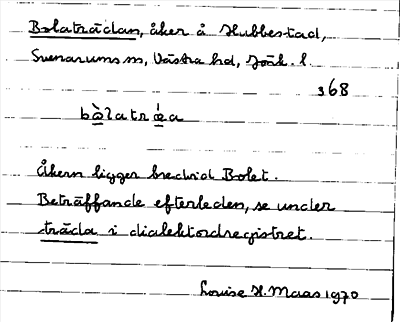 Bolaträdan, åker å Stubbestad,
Svenarums sn, Västra hd, Jönk. l.
368
bòlatrǿa
Åkern ligger bredvid Bolet.
Beträffande efterleden, se under
träda i dialektordsregistret.
Louise H. Maas 1970